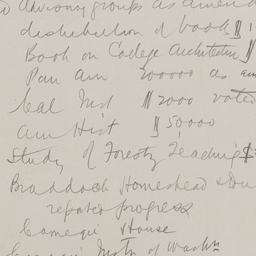 Advisory groups as amend
distribution of book $1
Book on College Architecture $
Pan Am 200000 as am
Cal Inst $2000 voted
Am Hist $50000
Study of Forestry Teaching $
Braddock Homestead & Du
reports progress
Carnegie House
Instn of Washn